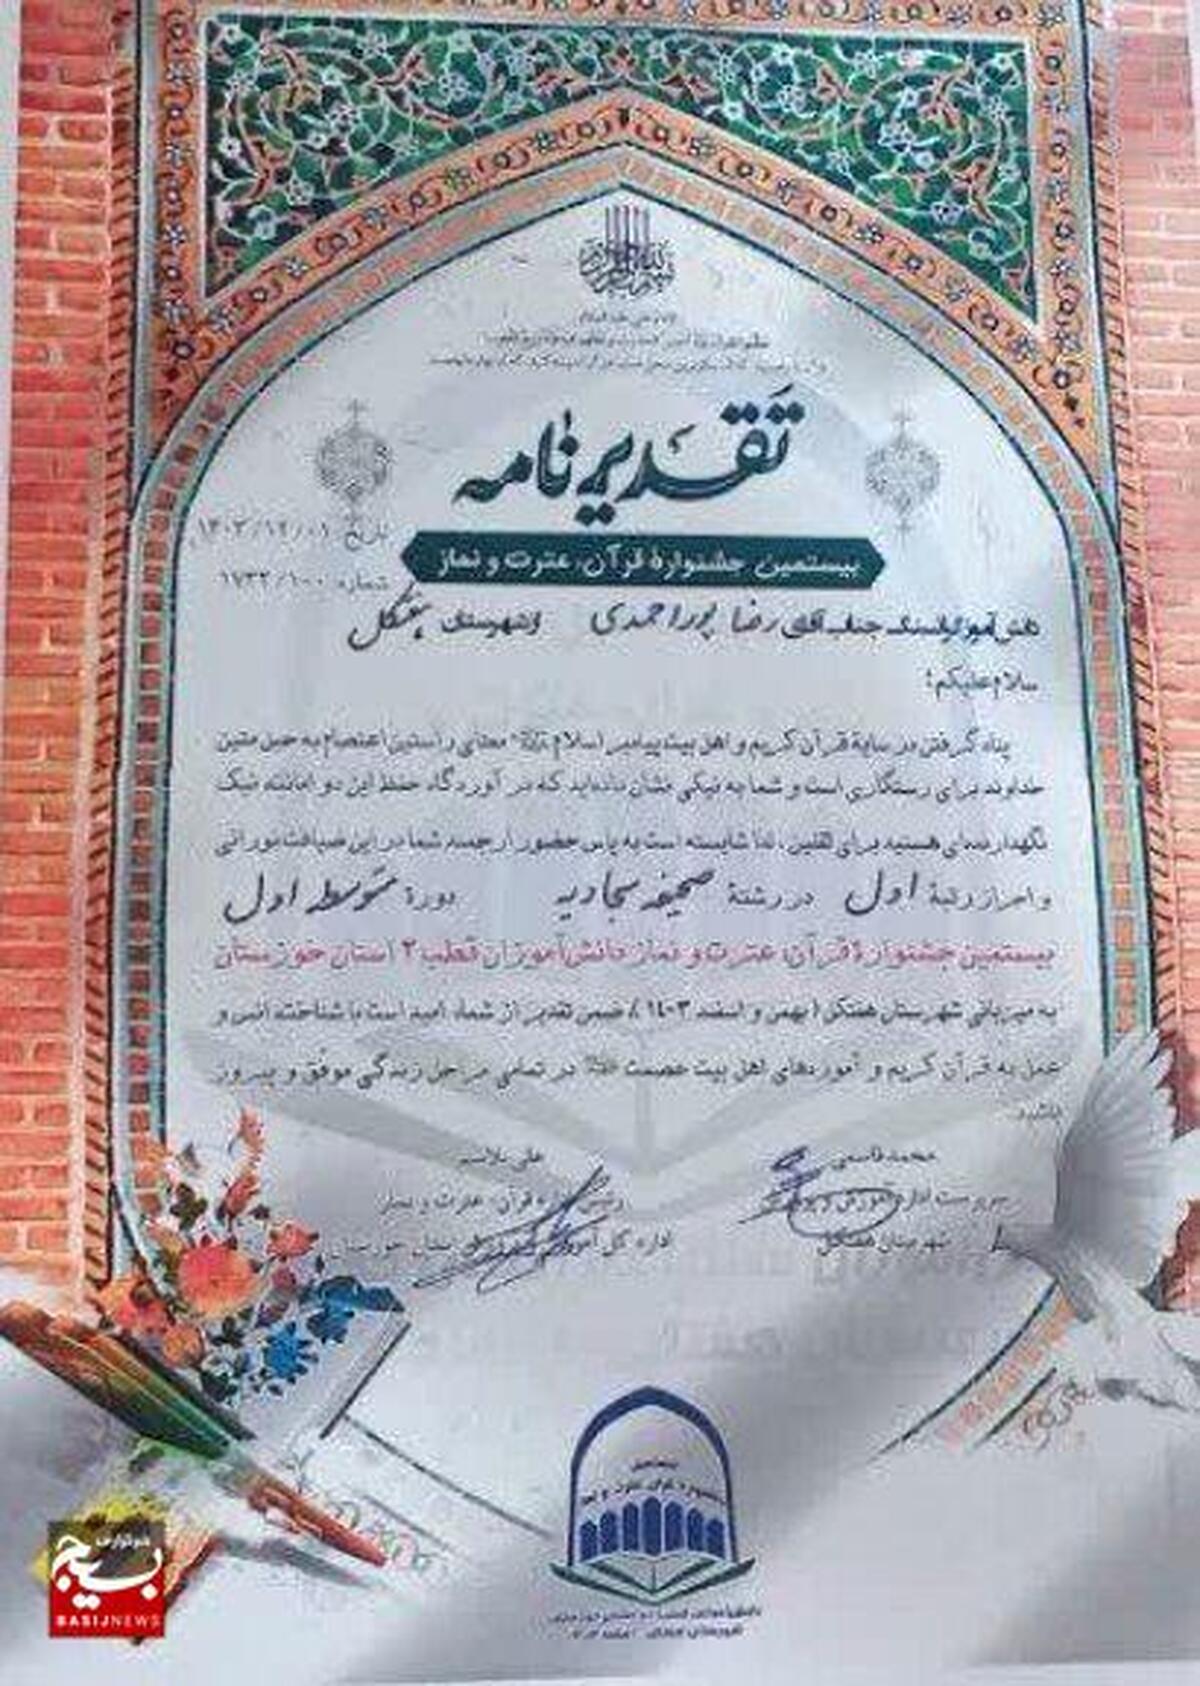 تقدیرنامه
بیستمین جشنوارهٔ قرآن، عترت و نماز
تاریخ: ۱۴۰۳/۱۲/۰۱
شماره: ۱۷۳۲/۱۰۰
دانش‌آموز گرانسنگ جناب آقای رضا پوراحمدی از شهرستان هفتکل
سلام علیکم؛
پناه گرفتن در سایهٔ قرآن کریم و اهل بیت پیامبر اسلام معنای راستین اعتصام به حبل متین
خداوند برای رستگاری است و شما به نیکی نشان داده‌اید که در آوردگاه حفظ این دو امانت، نیک
نگهدارنده‌ای هستید برای ثقلین، لذا شایسته است به پاس حضور ارجمند شما در این ضیافت نورانی
و احراز رتبهٔ اول در رشتهٔ صحیفه سجادیه دورهٔ متوسطه اول
بیستمین جشنوارهٔ قرآن، عترت و نماز دانش‌آموزان قطب ۲ استان خوزستان
به میزبانی شهرستان هفتکل (بهمن و اسفند ۱۴۰۳)، ضمن تقدیر از شما، امید است با شناخت، انس و
عمل به قرآن کریم و آموزه‌های اهل بیت عصمت در تمامی مراحل زندگی موفق و پیروز
باشید.
محمد قاسمی
سرپرست اداره آموزش و پرورش
شهرستان هفتکل
علی
رئیس اداره قرآن، عترت و نماز
اداره کل آموزش استان خوزستان
بسیج
BASIJNEWS